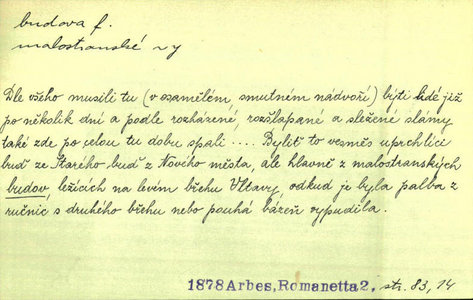 budova f.
malostranské ~y
Dle všeho musili tu (v osamělém, smutném nádvoří) býti lidé již
po několik dní a podle rozházené, rozšlapané a složené slámy
také zde po celou tu dobu spali .... Byliť to vesměs uprchlíci
buď ze Starého buď z Nového města, ale hlavně z malostranských
budov, ležících na levém břehu Vltavy, odkud je byla palba z
ručnic s druhého břehu nebo pouhá bázeň vypudila.
1878 Arbes, Romanetta 2. str. 83, 14